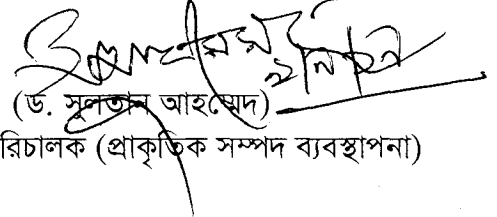 (ড. সুলতান আহমেদ)
রিচালক (প্রাকৃতিক সম্পদ ব্যবস্থাপনা)